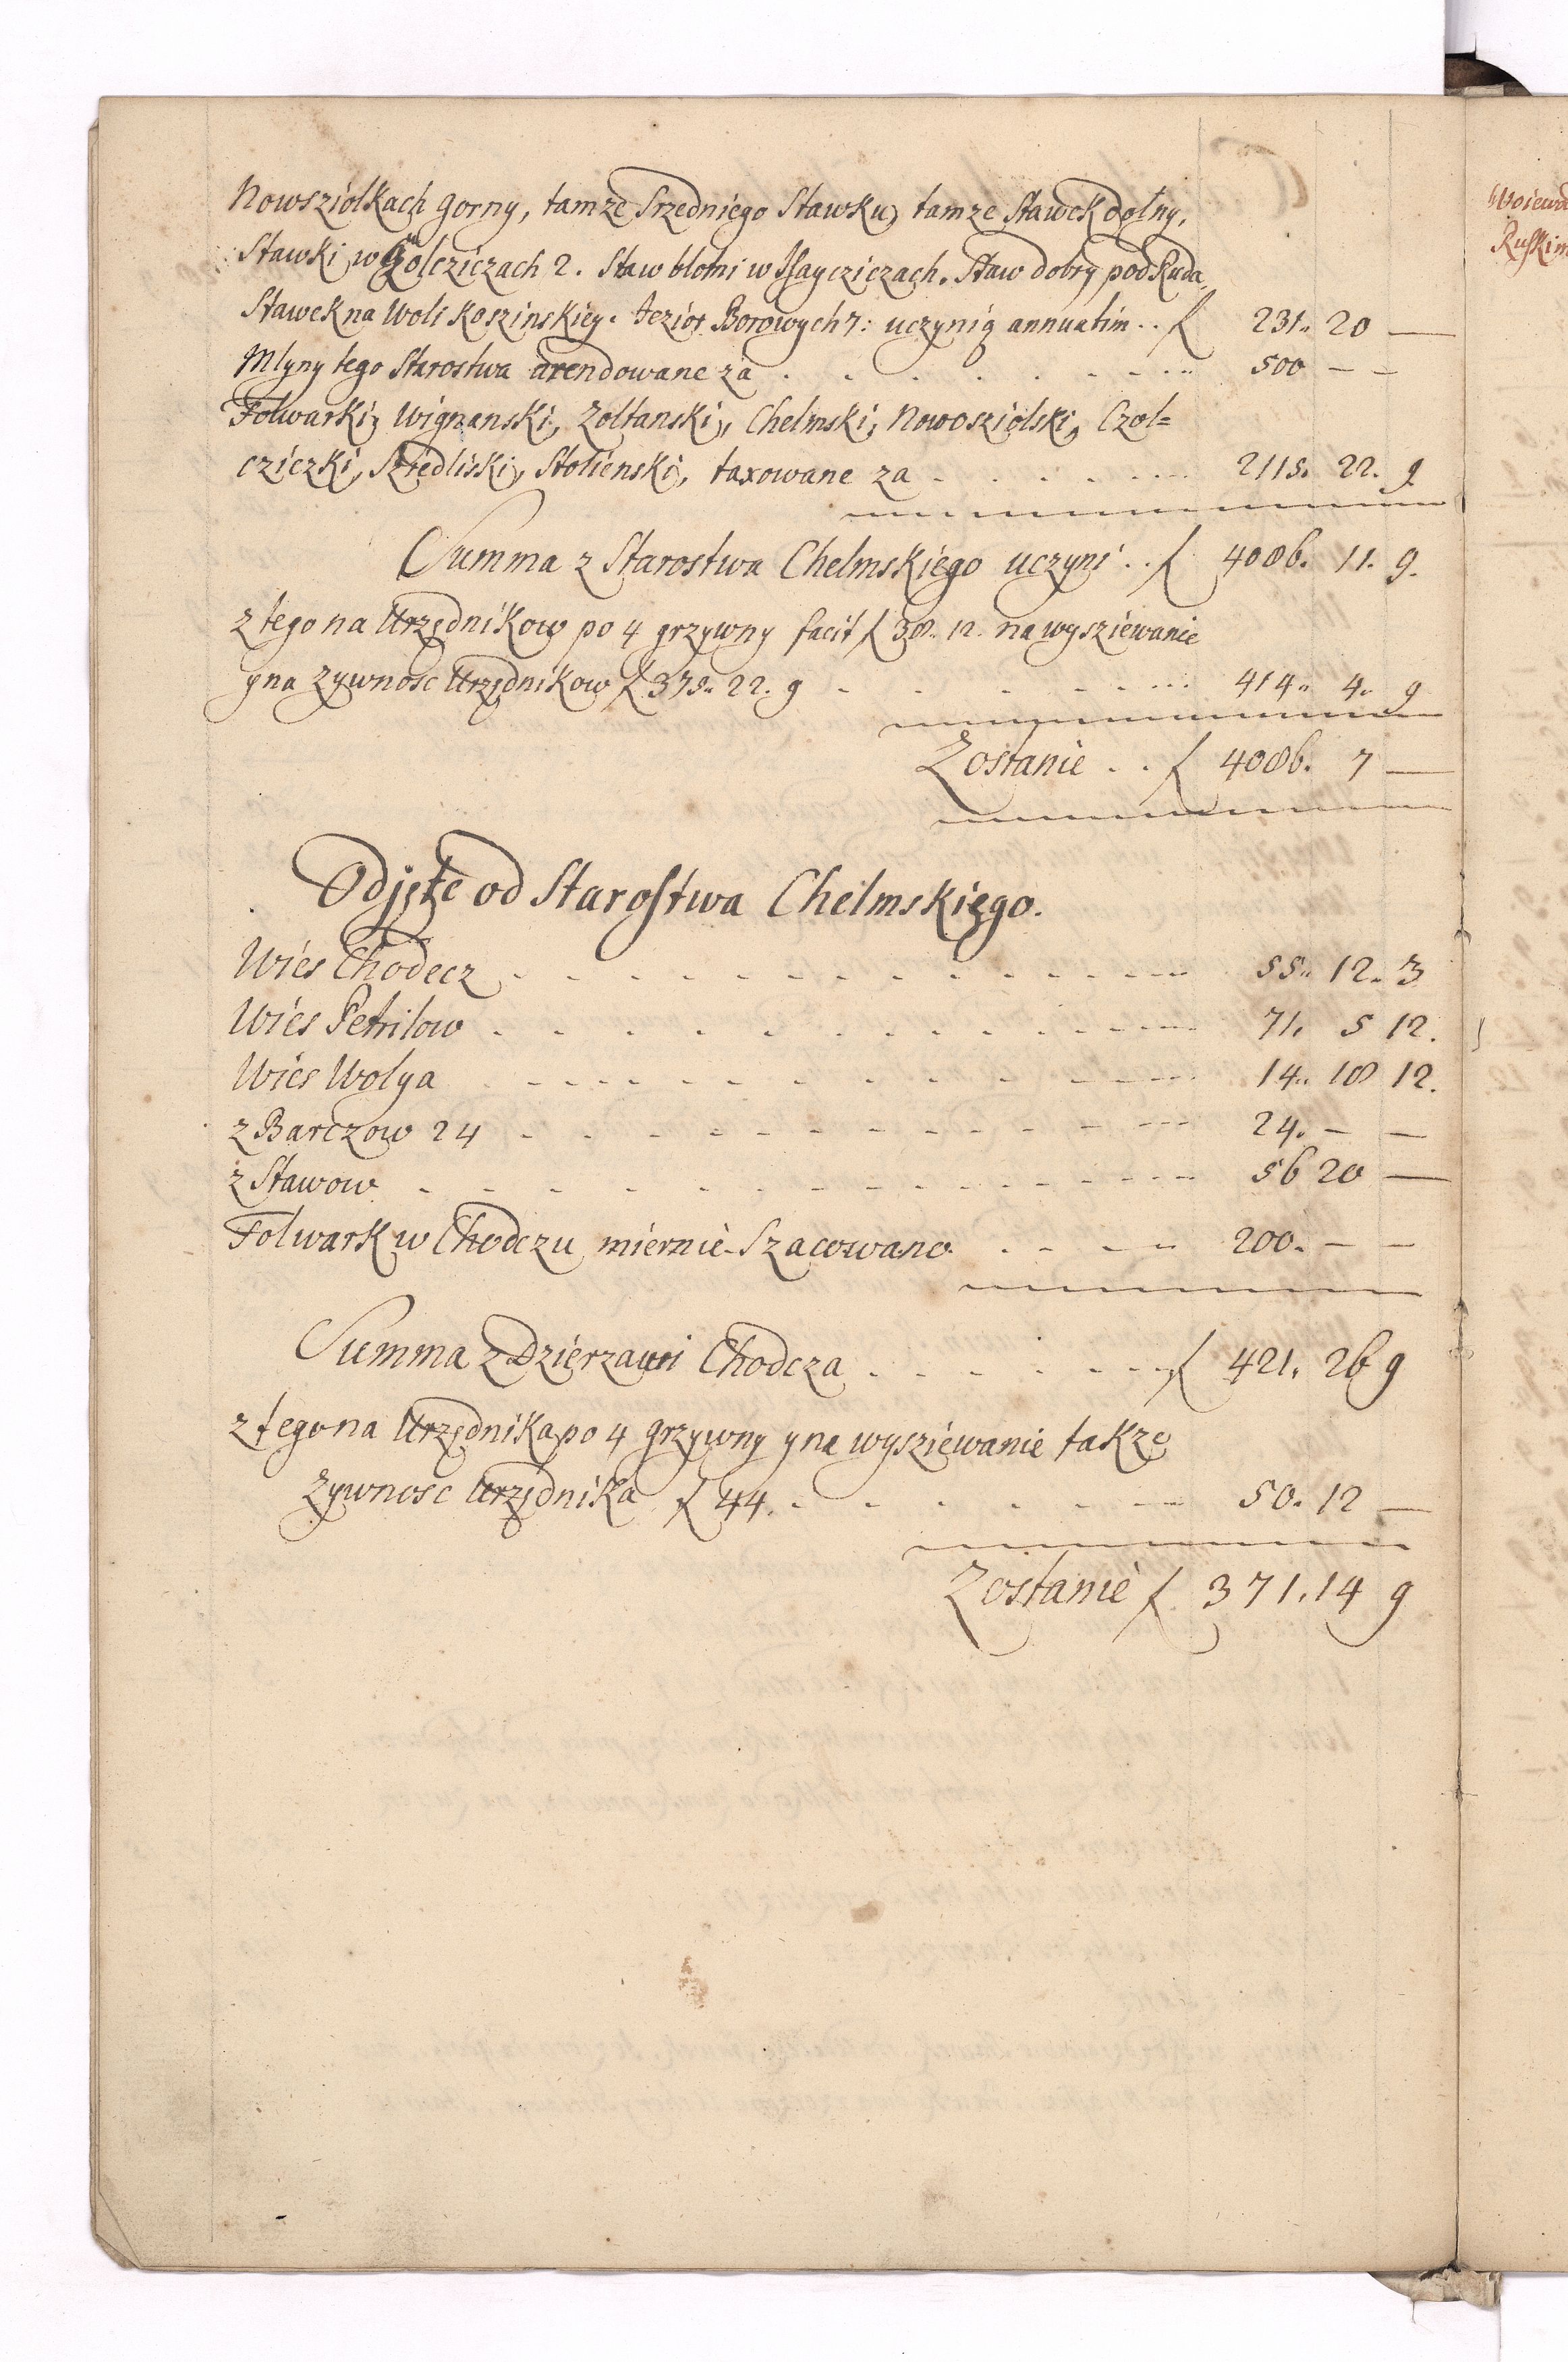 Nowsziolkach gorny, tamze Srzedniego Stawku, tamze Stawek dolny,
Stawki w Golcziczach 2. Staw blotni w Isaycziczach. Staw dobry pod Ruda
Stawek na Woli Koszinskiey. Jezior Borowych 7: uczynią annuatim .. f 231.. 20 —
Mlyny tego Starostwa arendowane za . . . . . . 500 — —
Folwarki, Wignanski, Zoltanski, Chelmski, Nowosziolski, Czol=
cziczki, Sziedliski, Stolienski, taxowane za . . . . . 2115. 22. 9
Summa z Starostwa Chelmskiego uczyni .. f 4086. 11. 9.
z tego na Urzędnikow po 4 grzywny facit f 38.. 12. na wysziewanie
y na zywnosc Urzędnikow f 375.. 22. 9 . . . . . 414.. 4. 9
Zostanie . . f 4086. 7 —
Odjęte od Starostwa Chelmskiego.
Wies Chodecz . . . . . 55.. 12. 3
Wies Petrilow . . . . . 71. 5 12.
Wies Wolya . . . . . 14.. 18 12.
z Barczow 24 . . . . . 24. — —
z Stawow . . . . . 56 20 —
Folwark w Chodczu miernie Szacowano . . . . 200. — —
Summa z Dzierzawi Chodcza . . . . . f 421. 26 9
z tego na Urzędnika po 4 grzywny y na wysziewanie takze
zywnosc Urzędnika f 44. . . . . . 50. 12 —
Zostanie f. 371. 14 9
Ruskim